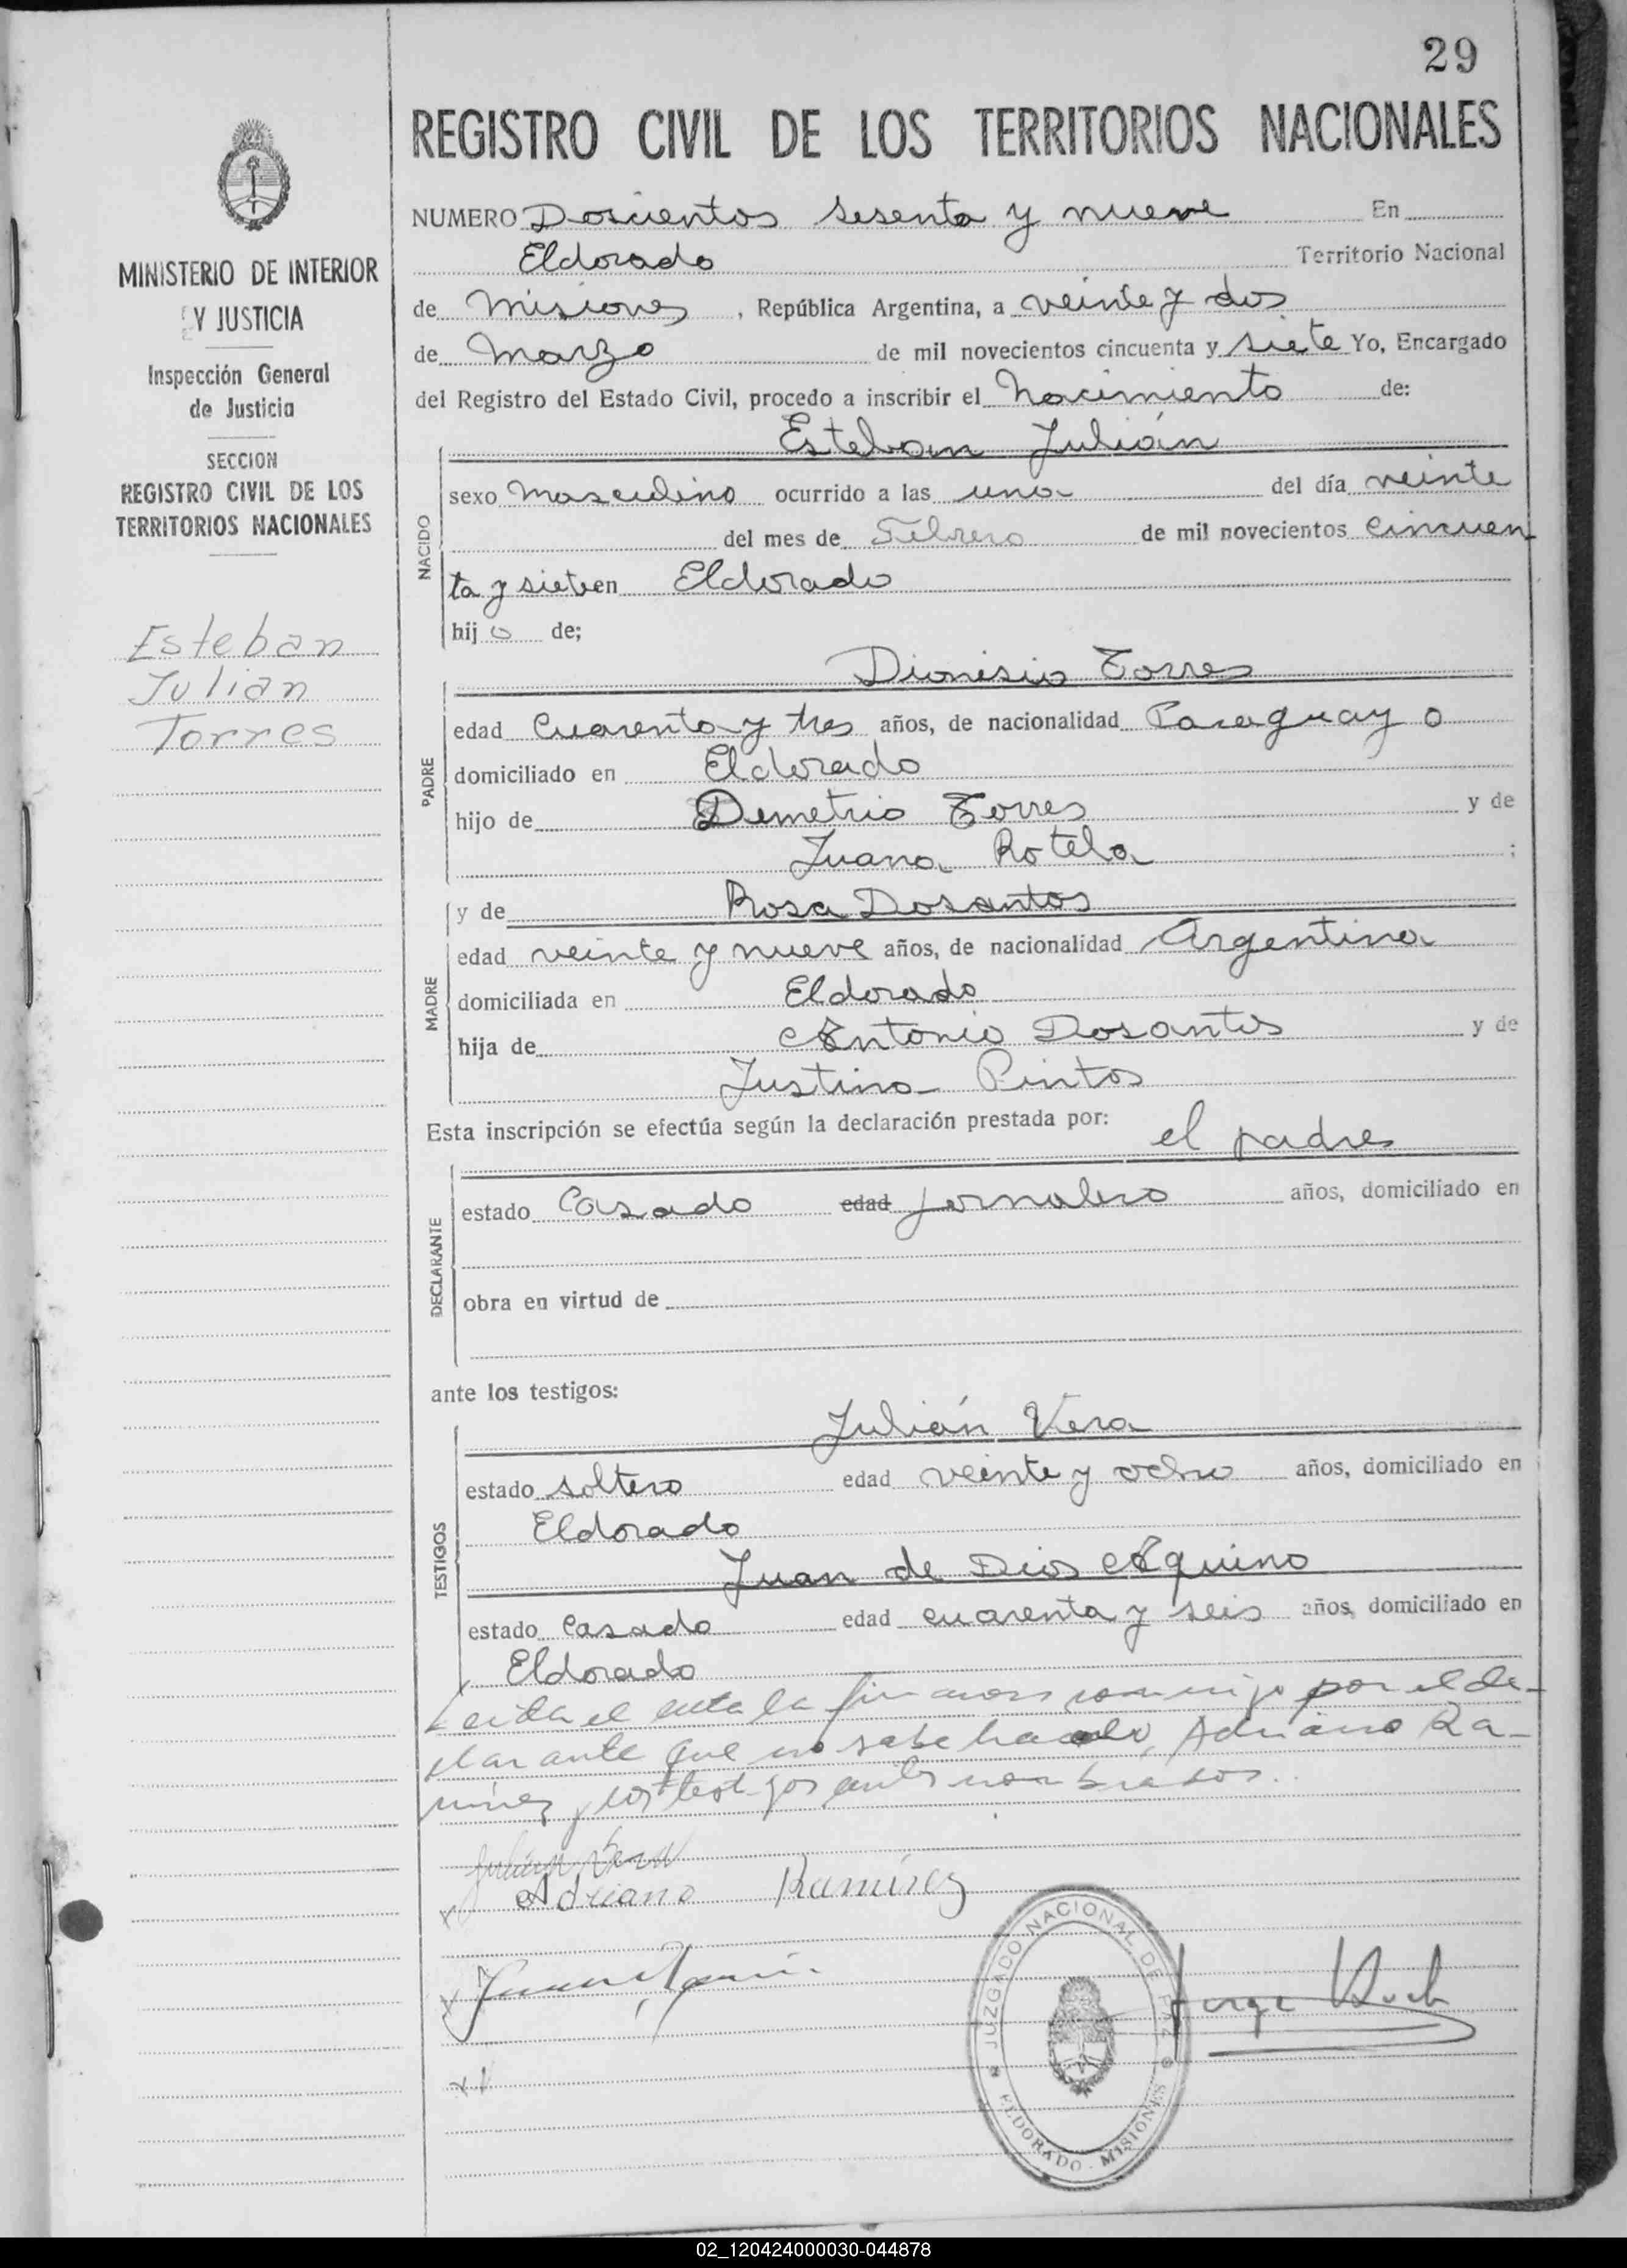 29
REGISTRO CIVIL DE LOS TERRITORIOS NACIONALES
MINISTERIO DE INTERIOR
Y JUSTICIA
Inspección General
de Justicia
SECCION
REGISTRO CIVIL DE LOS
TERRITORIOS NACIONALES
Esteban
Julian
Torres
NUMERO Doscientos sesenta y nueve En
Eldorado Territorio Nacional
de Misiones, República Argentina, a veinte y dos
de Marzo de mil novecientos cincuenta y siete Yo, Encargado
del Registro del Estado Civil, procedo a inscribir el Nacimiento de:
Esteban Julián
NACIDO
sexo masculino ocurrido a las una del día veinte
del mes de Febrero de mil novecientos cincuen
ta y siete en Eldorado
hijo de;
Dionisio Torres
PADRE
edad Cuarenta y tres años, de nacionalidad Paraguayo
domiciliado en Eldorado
hijo de Demetrio Torres y de
Juana Rotela ;
MADRE
y de Rosa Dosantos
edad veinte y nueve años, de nacionalidad Argentina
domiciliada en Eldorado
hija de Antonio Dosantos y de
Justina Pintos
Esta inscripción se efectúa según la declaración prestada por: el padre
DECLARANTE
estado Casado edad jornalero años, domiciliado en
obra en virtud de
ante los testigos:
TESTIGOS
Julián Vera
estado soltero edad veinte y ocho años, domiciliado en
Eldorado
Juan de Dios Aquino
estado Casado edad cuarenta y seis años, domiciliado en
Eldorado
Leida el acta la firmaron conmigo por el de-
clarante que no sabe hacerlo, Adriano Ra-
mírez y los testigos antes nombrados.
Julian Vera
Adriano Ramírez
Jorge
JUZGADO NACIONAL DE PAZ
ELDORADO - MISIONES
02_120424000030-044878